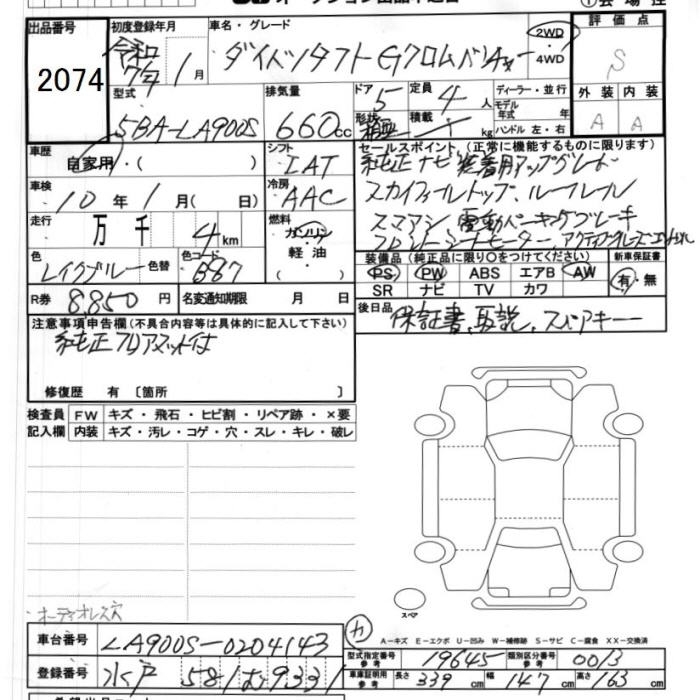 出品番号 2074
初度登録年月 令和 7年 1月
車名・グレード ダイハツタフトGクロムベンチャー
2WD ・ 4WD
評価点 S
外装 内装
A A
型式 5BA-LA900S
排気量 660cc
ドア 5
定員 4人
形状 箱型
積載 kg
ディーラー・並行
モデル年式 年式
ハンドル 左・右
車歴 自家用・( )
シフト IAT
セールスポイント(正常に機能するものに限ります)
純正ナビ装着用アップグレード
スカイフィールトップ、ルーフレール
スマアシ 電動パーキングブレーキ
フロントシートヒーター、アクティブ
車検 10年 1月( 日)
冷房 AAC
走行 万 千 4km
燃料 ガソリン 軽油 ( )
色 レイクブルー 色替
色コード B87
装備品(純正品に限り○をつけてください)
PS PW ABS エアB AW
SR ナビ TV カワ
新車保証書 有・無
R券 8,850円
名変通知期限 月 日
後日品 保証書、取説、スペアキー
注意事項申告欄(不具合内容等は具体的に記入して下さい)
純正フロアマット付
修復歴 有〔箇所 〕
検査員記入欄
FW キズ・飛石・ヒビ割・リペア跡・×要
内装 キズ・汚レ・コゲ・穴・スレ・キレ・破レ
オーディオレス穴
スペア
A-キズ E-エクボ U-凹み W-補修跡 S-サビ C-腐食 XX-交換済
車台番号 LA900S-0204143
登録番号 水戸 581 む9331
型式指定番号 参考 19645
類別区分番号 参考 0013
車庫証明用 参考 長さ 339cm 幅 147cm 高さ 163cm